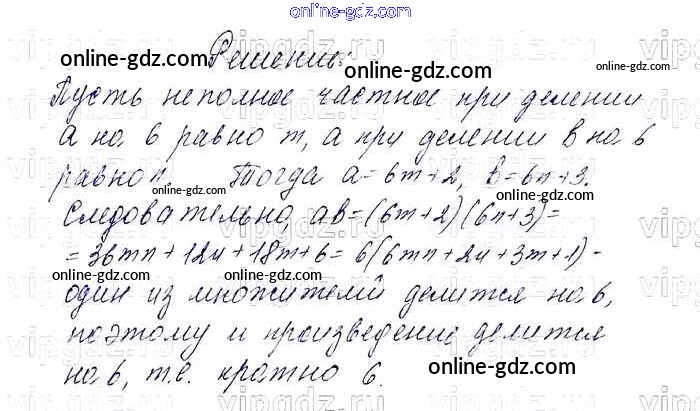 online-gdz.com
Решение:
online-gdz.com online-gdz.com
Пусть неполное частное при делении
а на 6 равно m, а при делении в на 6
равно n. Тогда a=6m+2, b=6n+3.
online-gdz.com online-gdz.com
Следовательно, ab=(6m+2)(6n+3)=
=36mn+12n+18m+6=6(6mn+2n+3m+1)-
online-gdz.com online-gdz.com
один из множителей делится на 6,
поэтому и произведение делится
на 6, т.е. кратно 6.
online-gdz.com online-gdz.com
vipgdz.ru